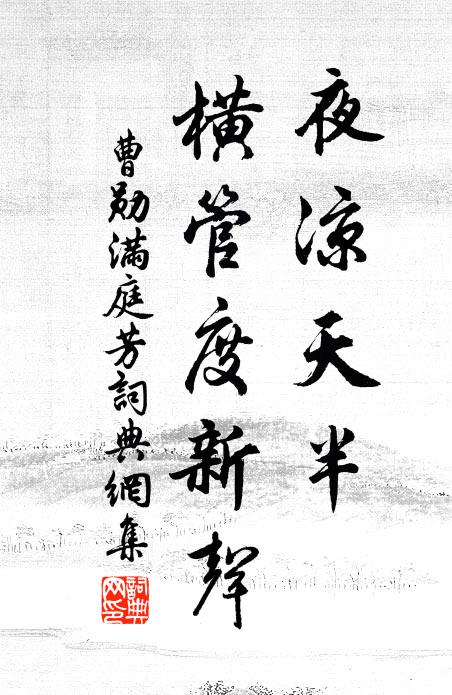 夜涼天半
橫管度新聲
曹勛滿庭芳詞典網集
詞典網印